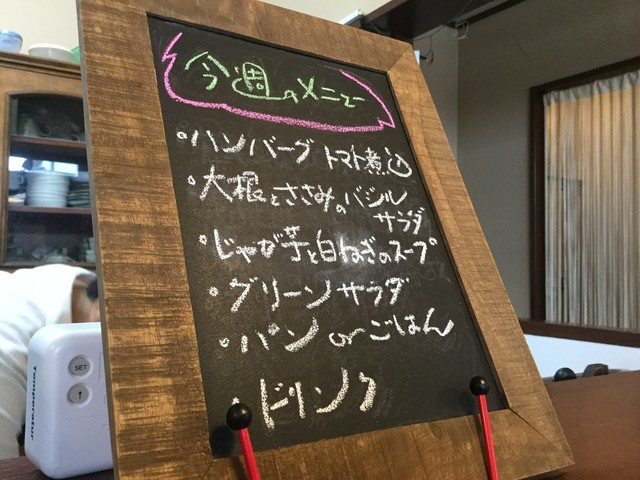 今週のメニュー
・ハンバーグ トマト煮込
・大根とささみのバジル
サラダ
・じゃが芋と白ねぎのスープ
・グリーンサラダ
・パン or ごはん
・ドリンク
SET
↑
Temperatur